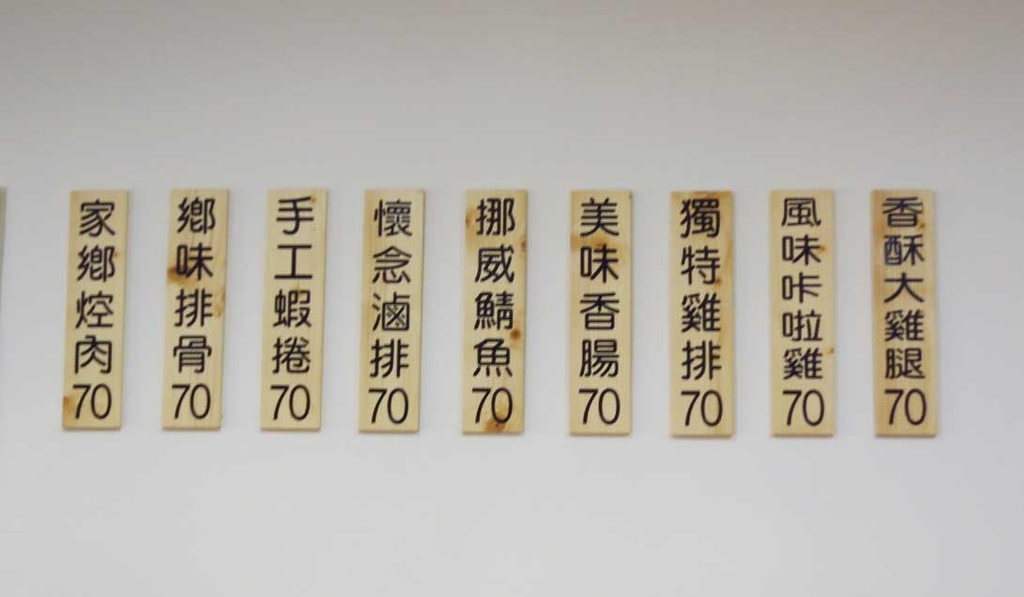 家鄉焢肉70
鄉味排骨70
手工蝦捲70
懷念滷排70
挪威鯖魚70
美味香腸70
獨特雞排70
風味咔啦雞70
香酥大雞腿70